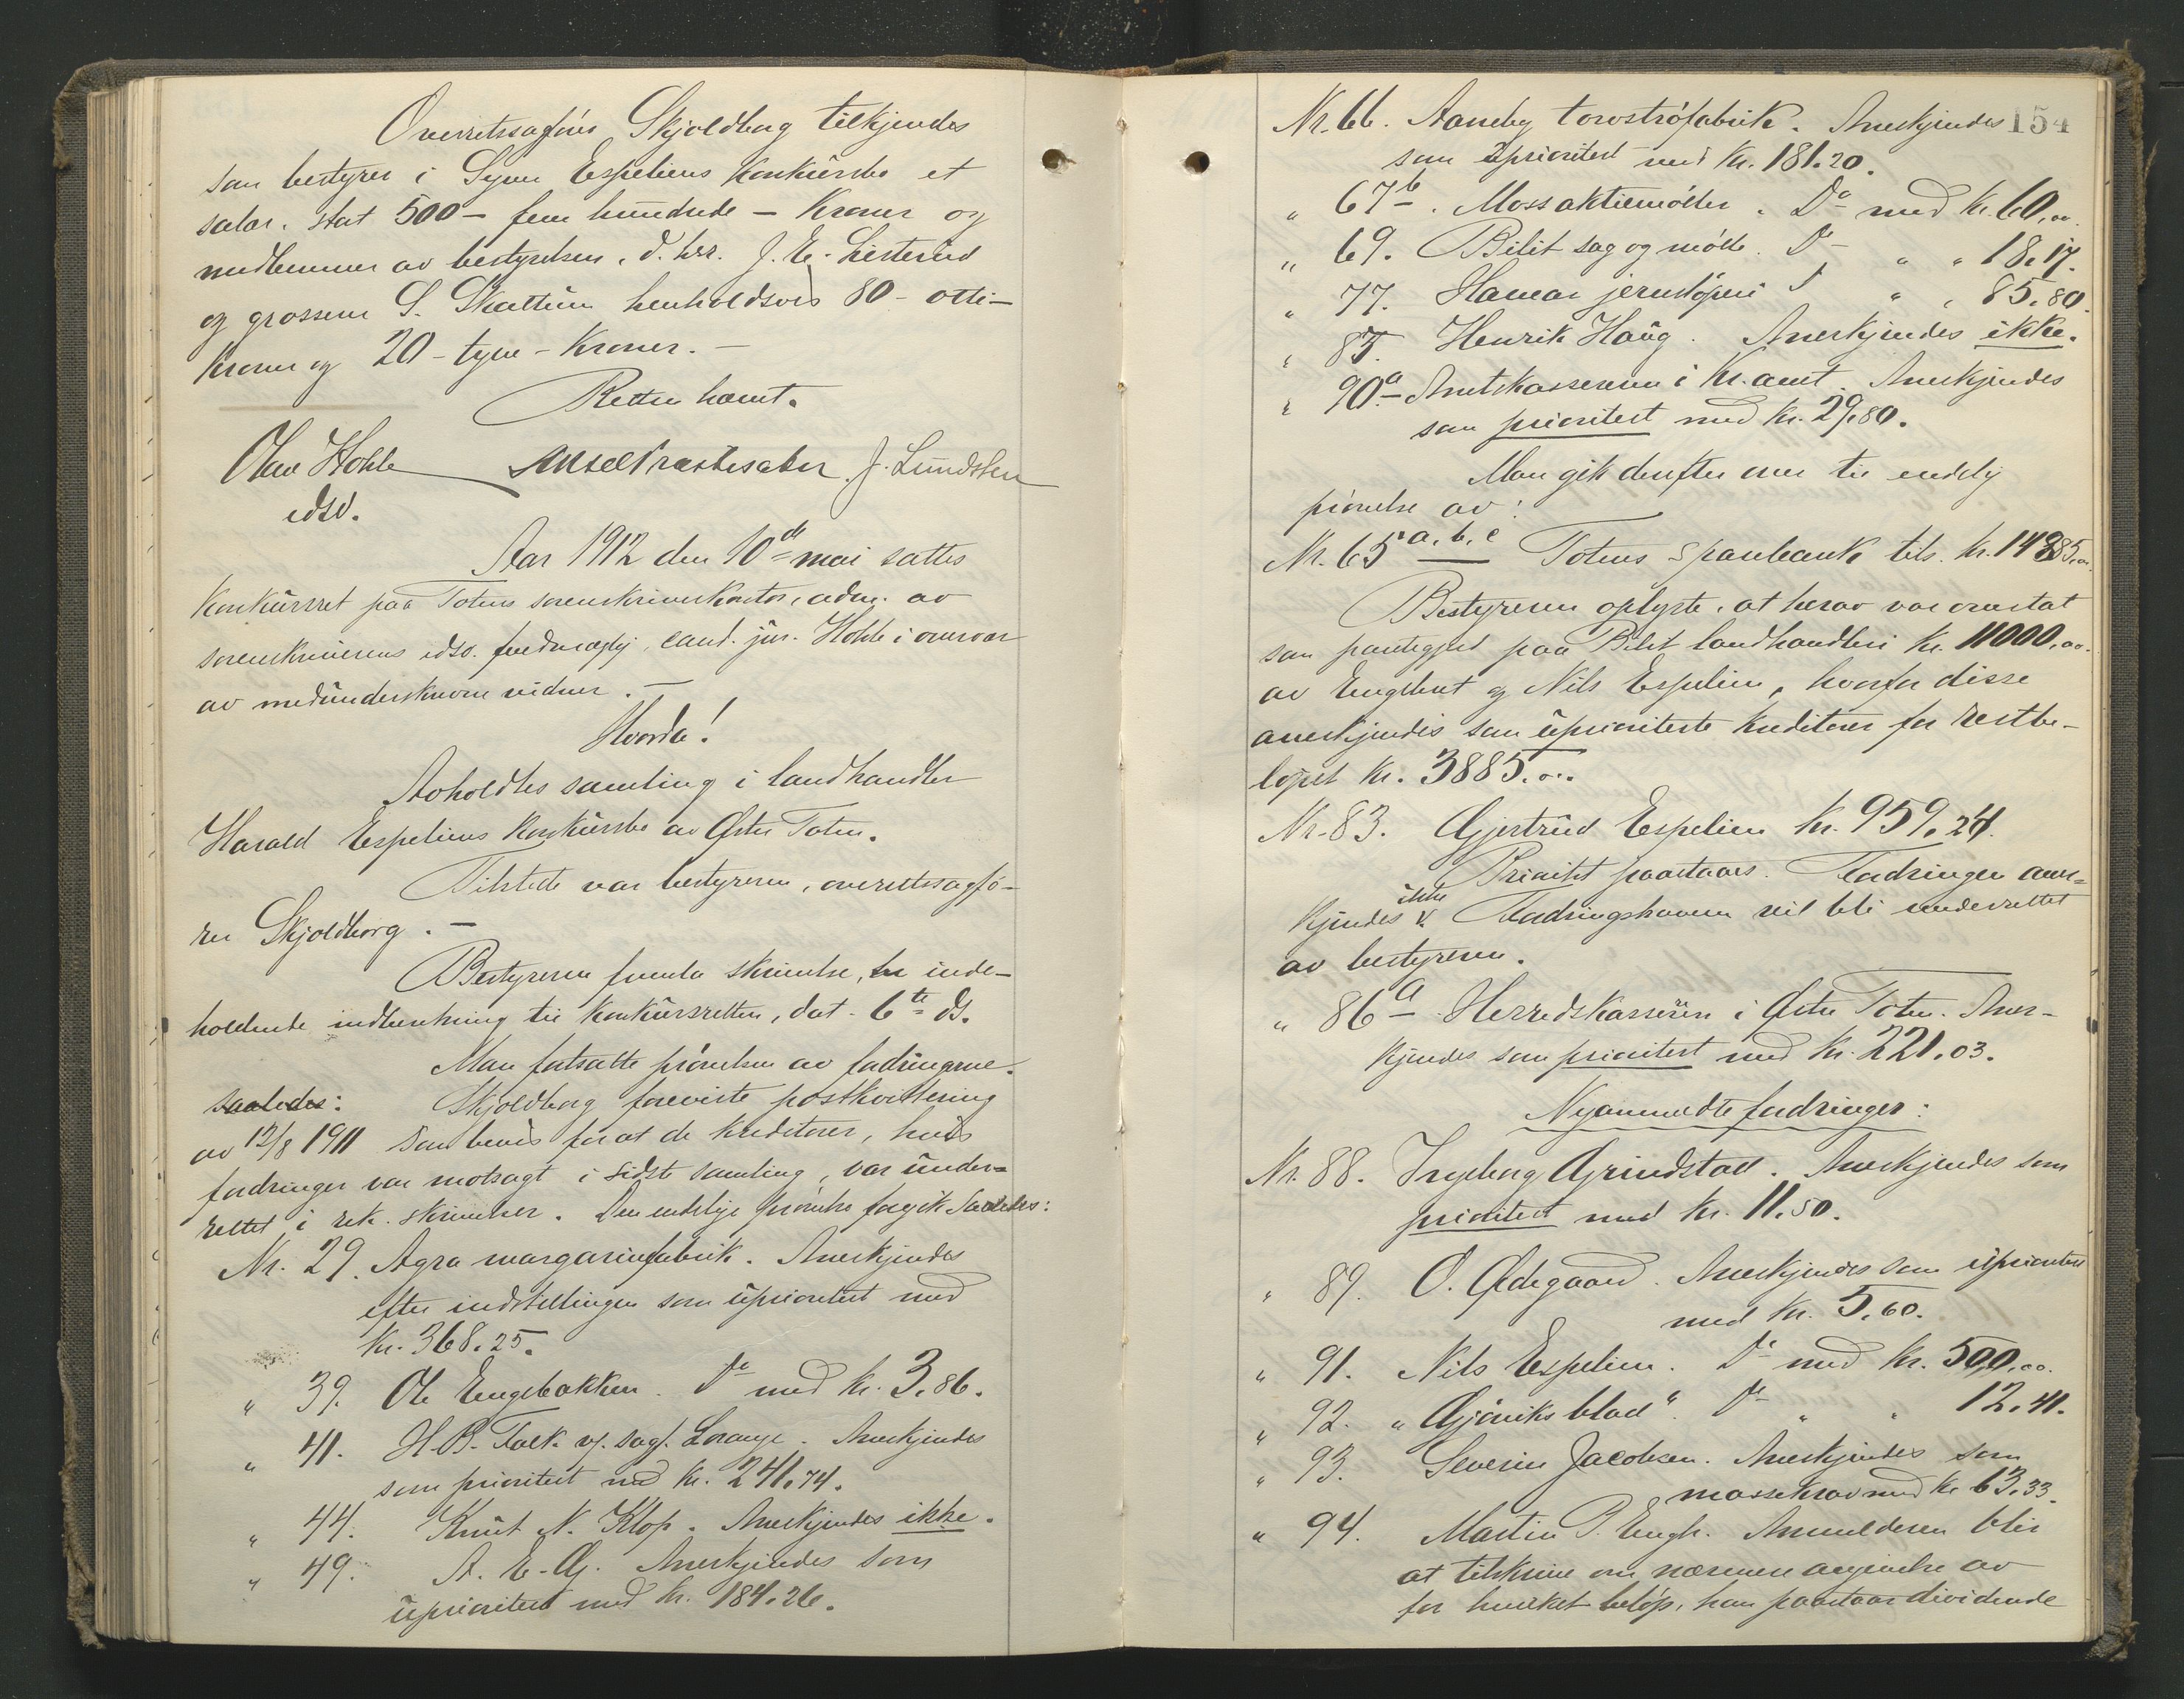 Overretssagfører Skjoldborg tilkjendes
som bestyrer i Syver Espeliens konkursbo et
salær, stort 500 – fem hundrede – kroner og
medlemmer av bestyrelsen, d'hrr. J. E. Listerud
og grosserer S. Skattum henholdsvis 80 – otti –
kroner og 20 – tyve – kroner. –
Retten hævet.
Olav Hohle Præstesæter J. Lundsten
edsv.
Aar 1912 den 10de mai sattes
konkursret paa Totens sorenskriverkontor, adm. av
sorenskriverens edsv. fuldmægtig, cand. jur. Hohle i overvær
av medunderskrevne vidner. –
Hvorda!
Avholdtes samling i landhandler
Harald Espeliens konkursbo av Østre Toten.
Tilstede var bestyreren, overretssagfø-
rer Skjoldborg. –
Bestyreren fremla skrivelse, inde-
holdende indberetning til konkursretten, dat. 6te ds.
Man fortsatte prøvelsen av fordringerne.
saaledes: Skjoldborg foreviste postkvittering
av 12/8 1911 som bevis for at de kreditorer, hvis
fordringer var motsagt i sidste samling, var under-
rettet i rek. skrivelser. Den endelige prøvelse foregik saaledes:
Nr. 29. Agra margarinfabrik. Anerkjendes
efter indstillingen som uprioritert med
kr. 368.25.
" 39. Ole Engebakken. Do med kr. 3.86.
" 41. H. B. Falk v/ sagf. Lorange. Anerkjendes
som prioritert med kr. 241.74.
" 44. Knut N. Klop. Anerkjendes ikke.
" 49. A. E. G. Anerkjendes som
uprioritert med kr. 184.26.
154
Nr. 66. Aaneby torvstrøfabrik. Anerkjendes
som uprioritert med kr. 181.20.
" 67b. Moss aktiemøller. Do med kr. 60.00.
" 69. Bilit sag og mølle. Do " " 18.17.
" 77. Hamar jernstøperi Do " " 85.80.
" 85. Henrik Haug. Anerkjendes ikke.
" 90a Amtskassereren i Kr. amt. Anerkjendes
som prioritert med kr. 29.80.
Man gik derefter over til endelig
prøvelse av:
Nr. 65 a, b, c Totens sparebank tils. kr. 14885.00.
Bestyreren oplyste, at herav var overtat
som pantegjeld paa Bilit landhandleri kr. 11000.00.
av Engebret og Nils Espelien, hvorfor disse
anerkjendes som upriorterte kreditorer for restbe-
løpet kr. 3885.00.
Nr. 83. Gjertrud Espelien kr. 959.24.
Prioritet paastaaes. Fordringen aner-
kjendes ikke. Fordringshaveren vil bli underrettet
av bestyreren.
" 86a Herredskassereren i Østre Toten. Aner-
kjendes som prioritert med kr. 221.03.
Nyanmeldte fordringer:
Nr. 88. Ingeborg Grindstad. Anerkjendes som
prioritert med kr. 11.50.
" 89. O. Ødegaard. Anerkjendes som uprioritert
med kr. 5.60.
" 91. Nils Espelien. Do med kr. 500.00.
" 92. "Gjøviks blad". Do " " 12.41.
" 93. Severin Jacobsen. Anerkjendes som
massekrav med kr. 63.33.
" 94. Martin P. Engh. Anmelderen blir
at tilskrive om nærmere angivelse av
for hvilket beløp, han paastaar dividende